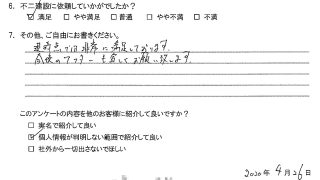 6. 不二建設に依頼していかがでしたか？
☑ 満足 □ やや満足 □ 普通 □ やや不満 □ 不満
7. その他、ご自由にお書きください。
現時点では非常に満足しております。
今後のアフターも含してお願い致します。
このアンケートの内容を他のお客様に紹介して良いですか？
□ 実名で紹介して良い
☑ 個人情報が判明しない範囲で紹介して良い
□ 社外から一切出さないでほしい
2020年 4月 26日